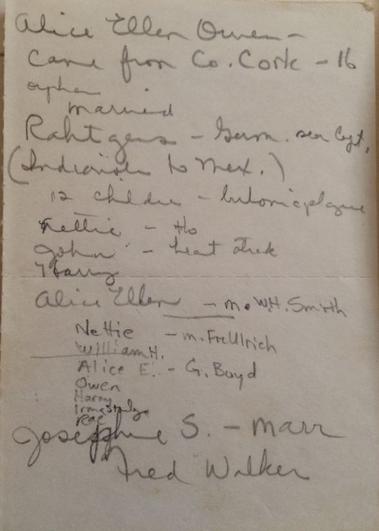 Alice Ellen Owen -
Came from Co. Cork - 16
orphan
married
Rahtgens - Germ. sea Capt.
(Indianola to Mex.)
12 children - bubonic plague
Nettie - Ho
John - heat stroke
Harry
Alice Ellen - m. W.H. Smith
Nettie - m. Fre Ullrich
William H.
Alice E. - G. Boyd
Owen
Harry
Irme
Rae
Josephine S. - marr
Fred Walker